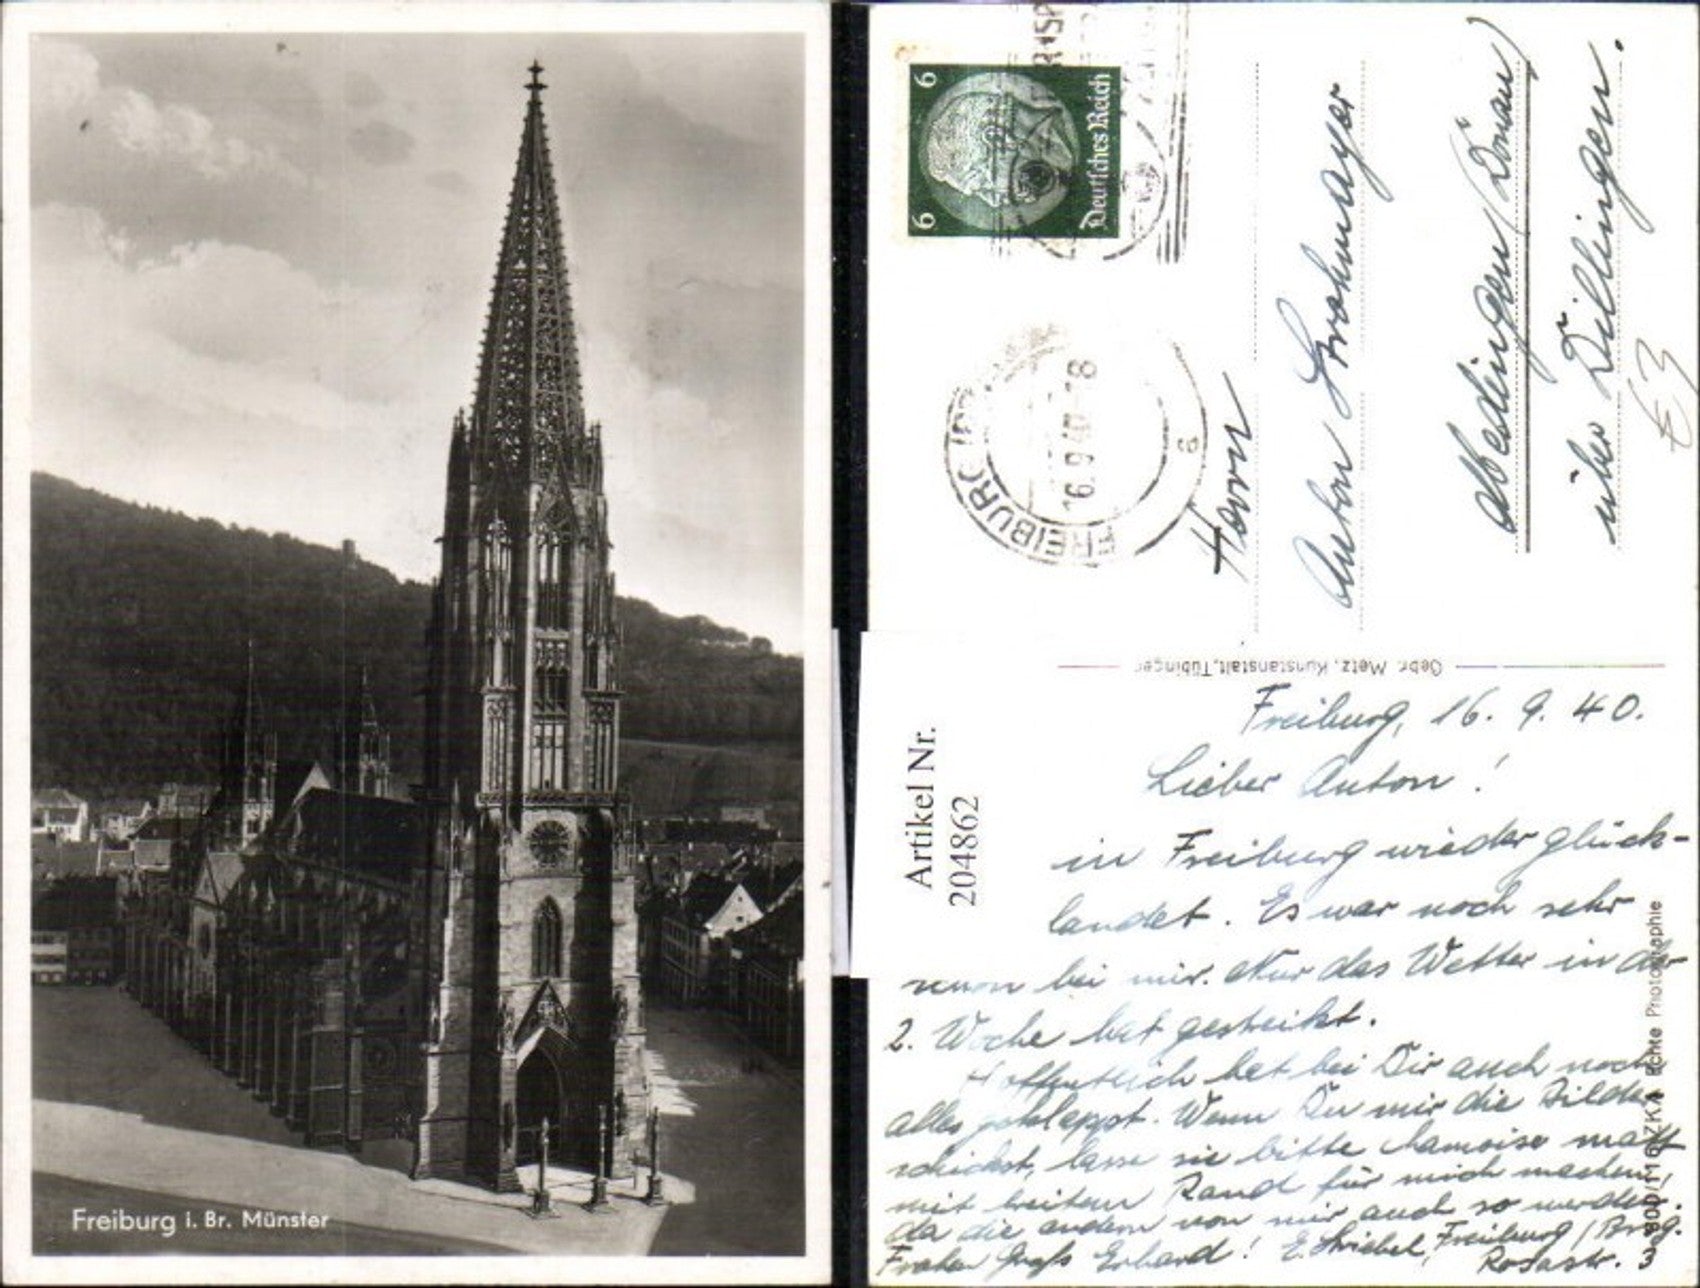 Freiburg i. Br. Münster
6
6
Deutsches Reich
FREIBURG
16.9.40
a
Herrn
Anton Grohmayer
über Dillingen.
Gebr. Metz, Kunstanstalt, Tübingen
Artikel Nr.
204862
Freiburg, 16. 9. 40.
Lieber Anton!
in Freiburg wieder glück-
landet. Es war noch sehr
bei mir. Nur das Wetter in der
2. Woche hat gestreikt.
Hoffentlich hat bei Dir auch noch
alles geklappt. Wenn Du mir die Bilder
schickst, lasse sie bitte chamois matt
mit breitem Rand für mich machen,
da die andern von mir auch so werden.
Frohen Gruß Erhard! E. Striebel, Freiburg / Brsg.
Rosastr. 3
Echte Photographie